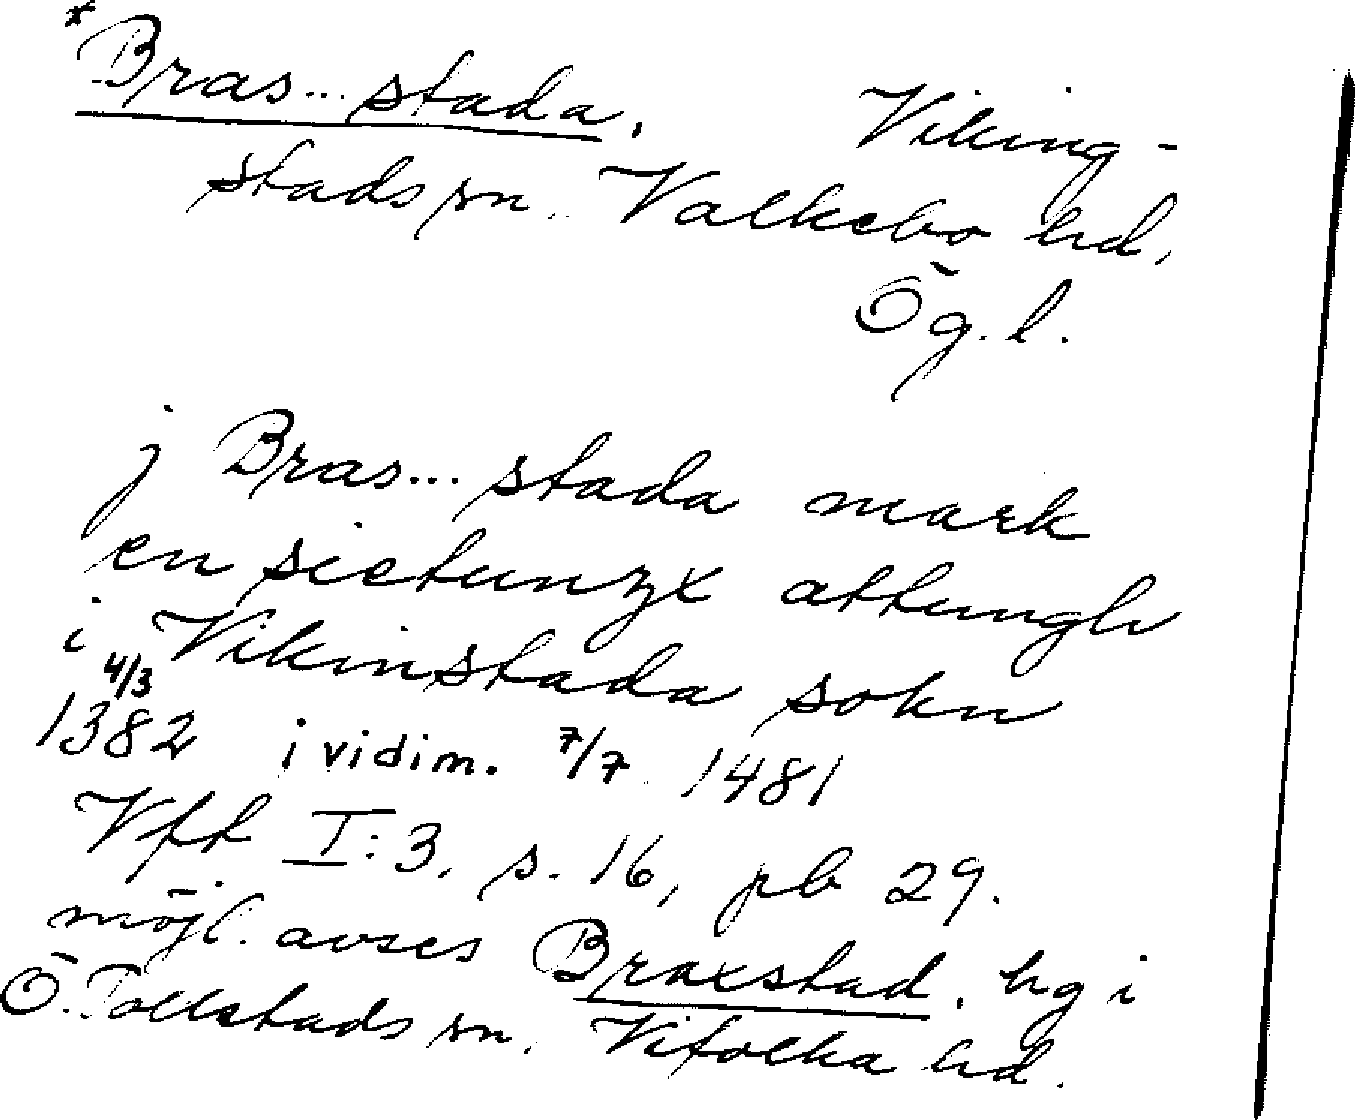 *Bras... stada, Viking-
stads sn. Valkebo hd,
Ög.l.
j Bras... stada mark
en sietungx attungh
i Vikinstada sokn
4/3
1382 i vidim. 7/7 1481
Vft I:3, s. 16, pb 29.
möjl. avses Braxstad, hg i
Ö. Tollstads sn, Vifolka hd.